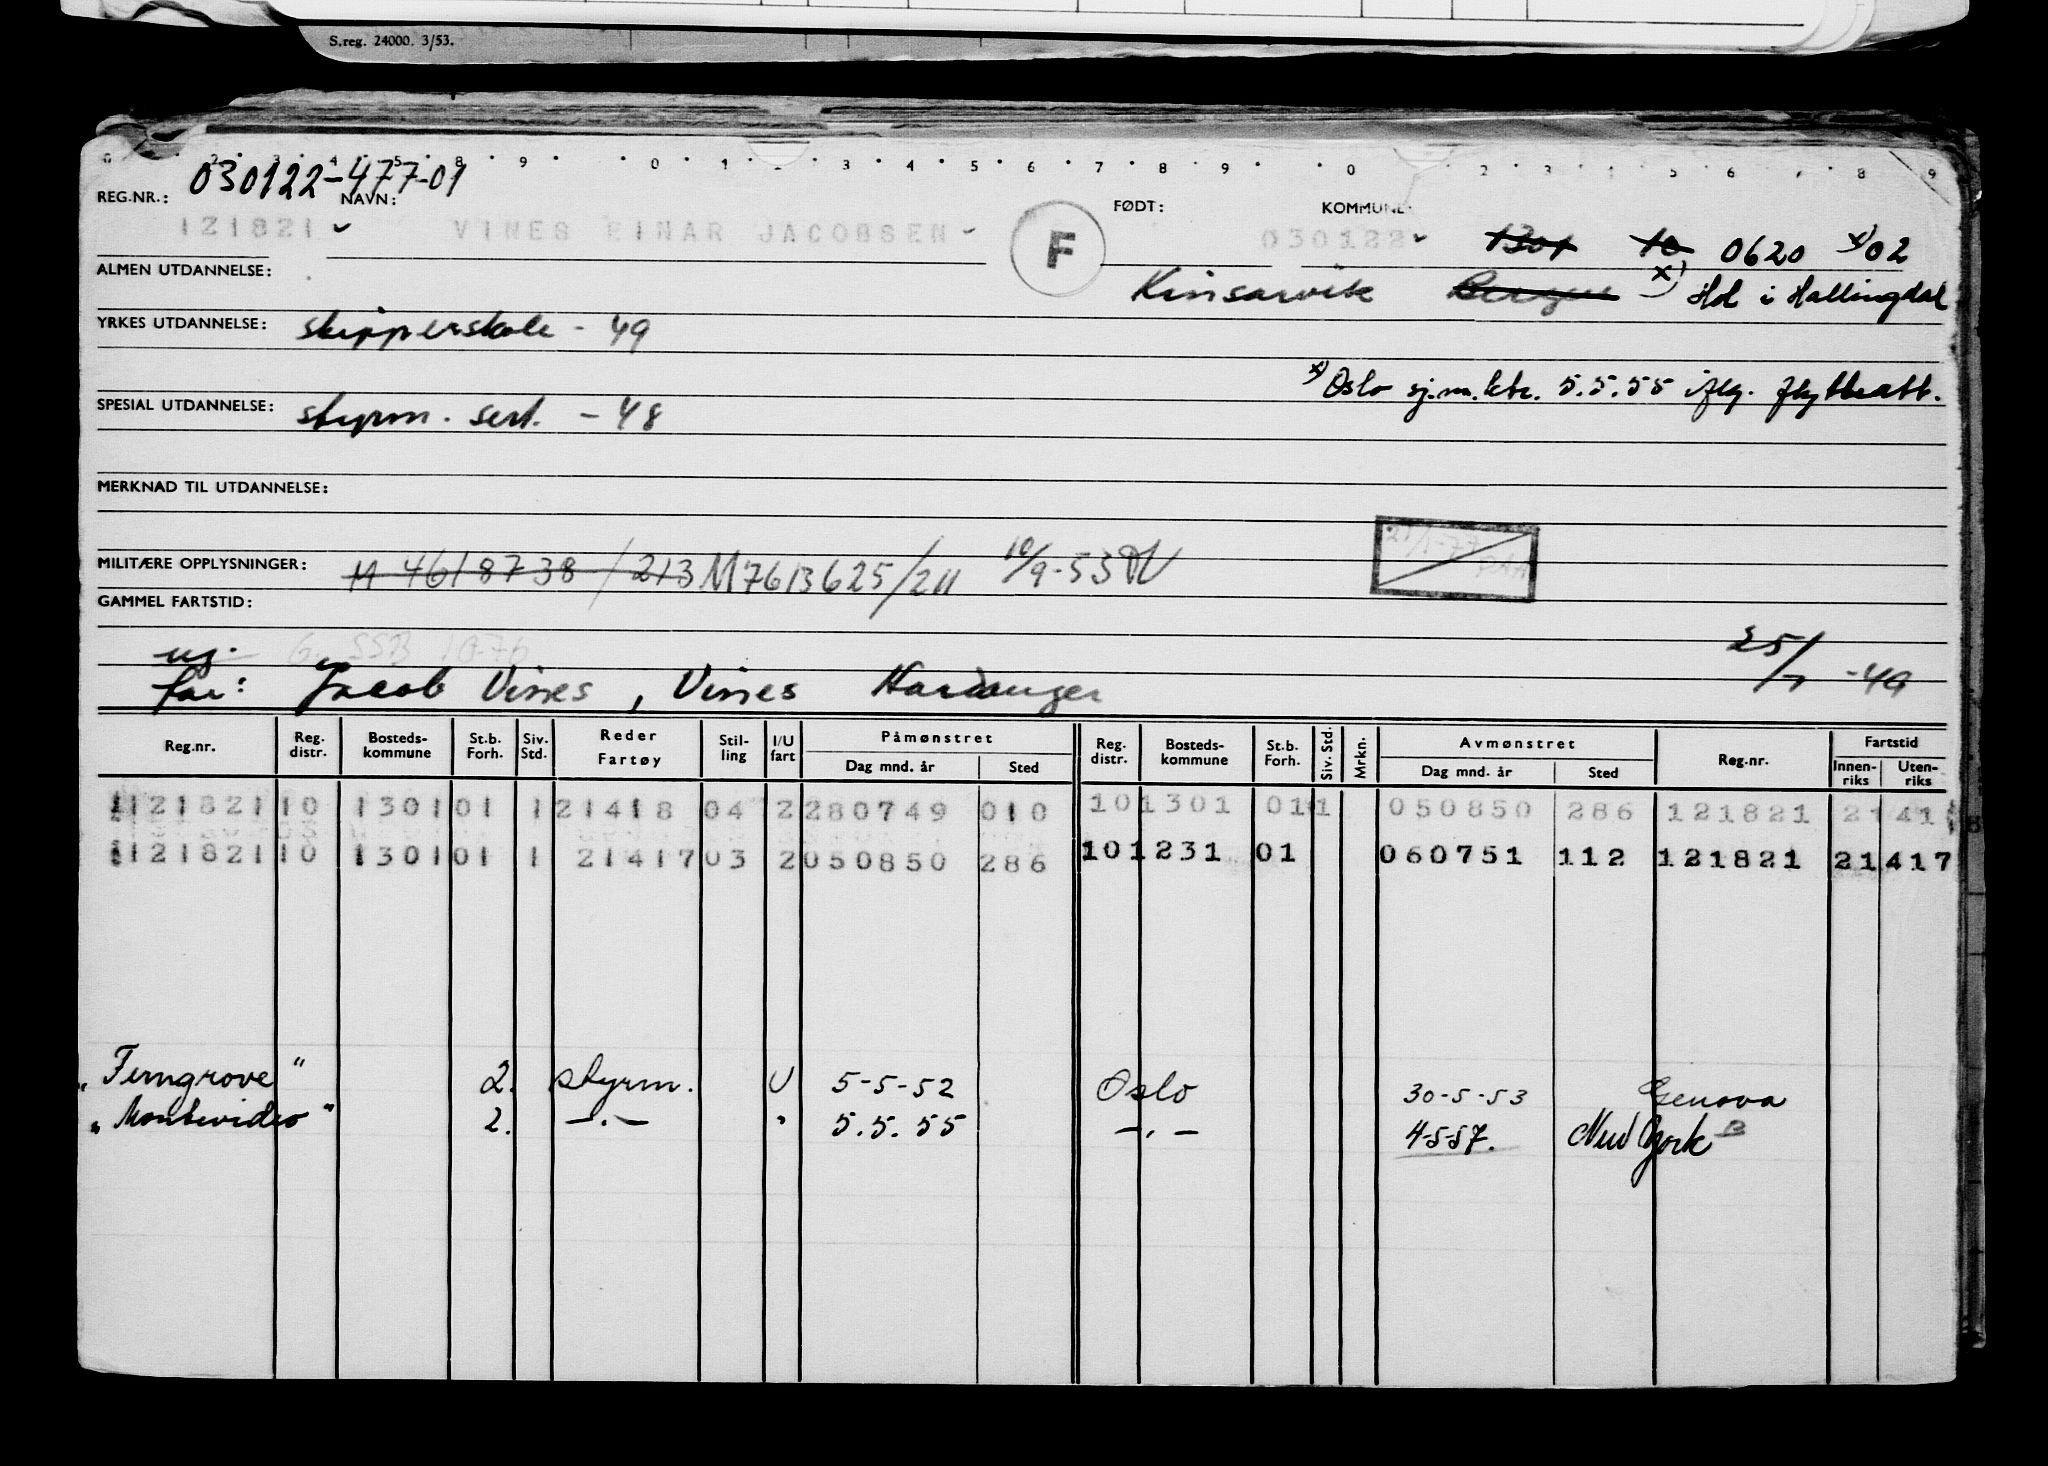 S.reg. 24000. 3/53.
REG.NR.: 030122-477-01 NAVN: FØDT: KOMMUNE:
121821 VINES EINAR JACOBSEN F 030122 1301 10 0620 x) 02
ALMEN UTDANNELSE: Kinsarvik Bergen x) Hol i Hallingdal
YRKES UTDANNELSE: skipperskole - 49
x) Oslo sj.m.ktr. 5.5.55 iflg. flytteatt.
SPESIAL UTDANNELSE: styrm. sert. - 48
MERKNAD TIL UTDANNELSE:
MILITÆRE OPPLYSNINGER: M 4618738/213 M7613625/211 10/9-53
GAMMEL FARTSTID:
ug. G. SSB 10-76
far: Jacob Vines, Vines Hardanger 25/7 -49
Reg.nr. Reg. distr. Bosteds-kommune St.b. Forh. Siv. Std. Reder Fartøy Stil-ling I/U fart Påmønstret Dag mnd. år Sted Reg. distr. Bosteds-kommune St.b. Forh. Siv. Std. Mrkn. Avmønstret Dag mnd. år Sted Reg.nr. Fartstid Innen-riks Uten-riks
121821 10 1301 01 1 21418 04 2 280749 010 10 1301 01 1 050850 286 121821 21 41
121821 10 1301 01 1 21417 03 2 050850 286 10 1231 01 060751 112 121821 21 417
"Ferngrove" 2. styrm. U 5-5-52 Oslo 30-5-53 Genova
"Montevideo" 2. -.- " 5.5.55 -.- 4-5-57. New York B